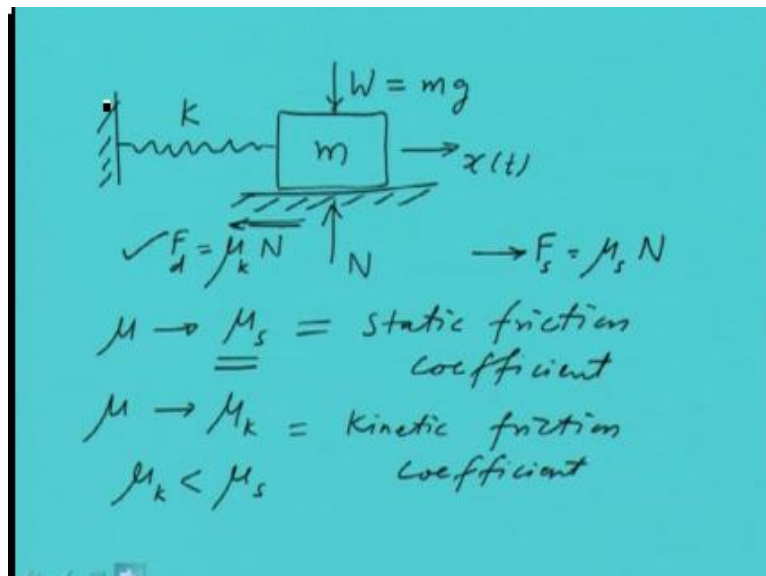 W = mg
K
m
x(t)
✓ F_d = μ_k N
N
→ F_s = μ_s N
μ → μ_s = Static friction
coefficient
μ → μ_k = Kinetic friction
coefficient
μ_k < μ_s